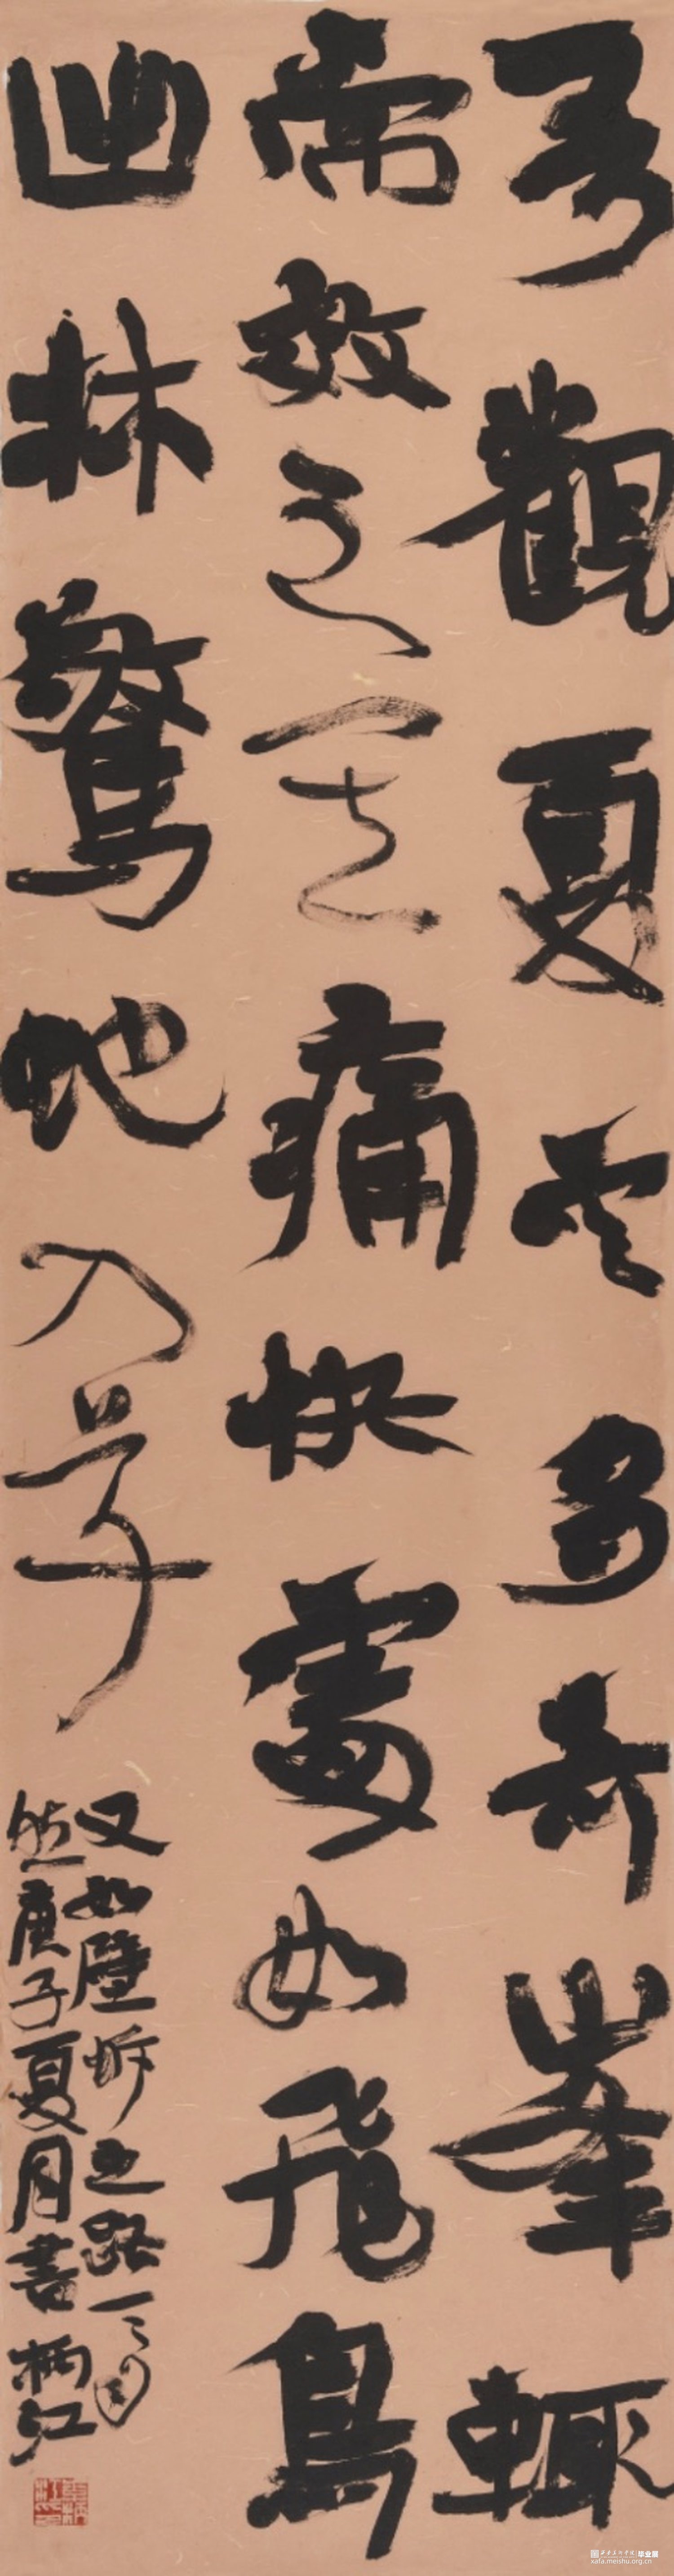 吾觀夏云多奇峯輒
常效之其痛快處如飛鳥
出林驚蛇入草
又如壁坼之路一一自
然庚子夏月書柄江
西安美术学院 毕业展
xafa.meishu.org.cn